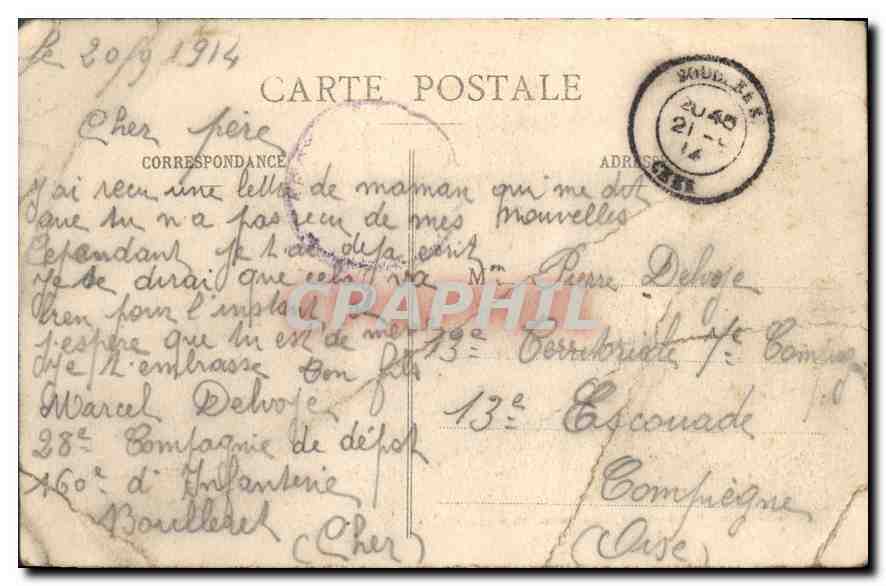 le 20/9 1914
CARTE POSTALE
Cher père
CORRESPONDANCE
J'ai recu une lettre de maman qui me dit
que tu n'a pas recu de mes nouvelles
Cependant je t'ai deja ecrit
Je te dirai que cela va
bien pour l'instant
j'espere que tu est de meme
Je t'embrasse ton fils
Marcel Delvoje
28e Compagnie de dépot
160e d'Infanterie
Boulleret
(Cher)
ADRESSE
Mr Pierre Delvoje
13e Territoriale 7e Compag
13e Escouade
Compiègne
(Oise)
20 45
21
14
CHER
CPAPHIL